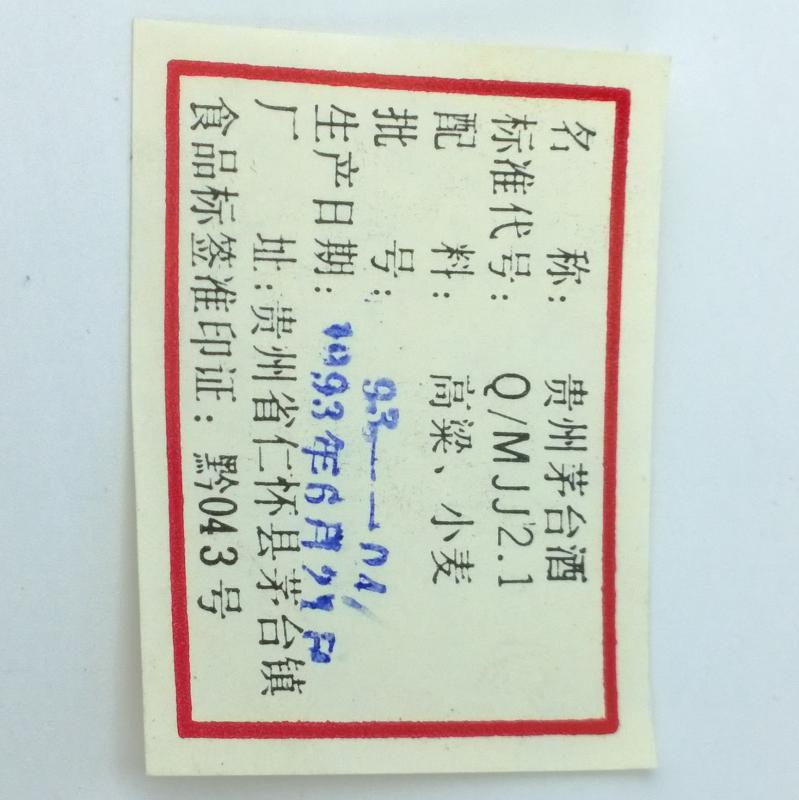 名　　称：　贵州茅台酒
标准代号：　Q/MJJ2.1
配　　料：　高粱、小麦
批　　号：　93——04
生产日期：1993年6月21日
厂　　址：贵州省仁怀县茅台镇
食品标签准印证：黔043号